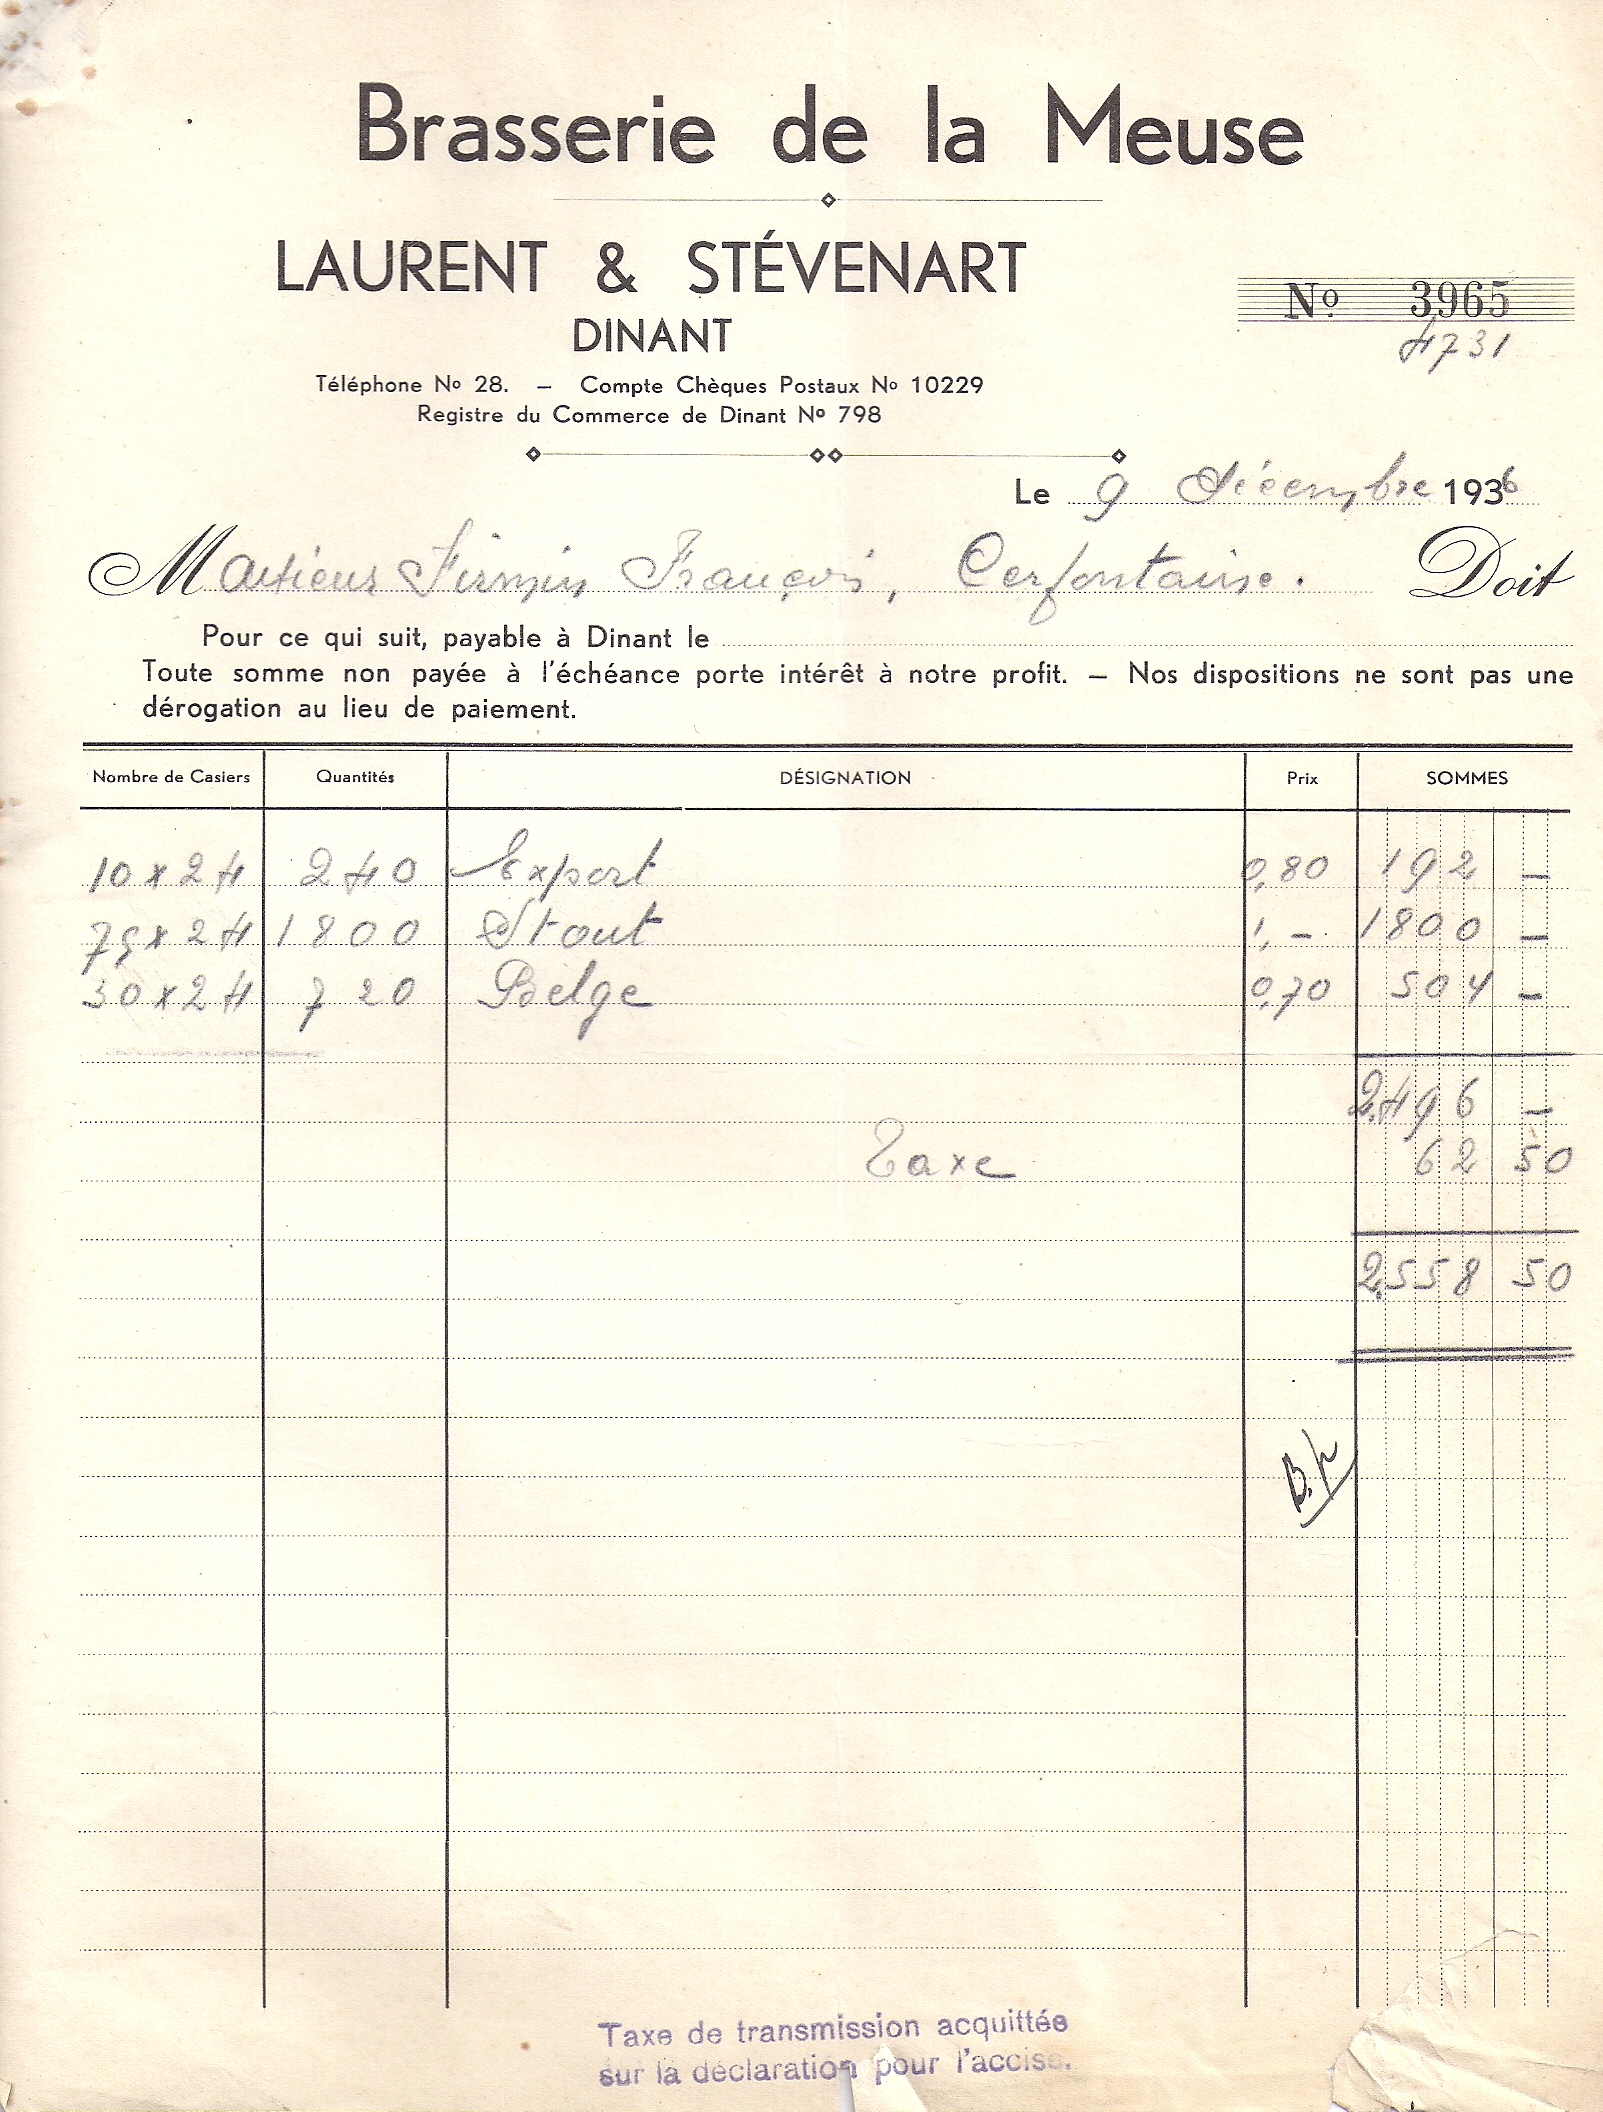 Brasserie de la Meuse
LAURENT & STÉVENART
DINANT
Nº 3965
4731
Téléphone Nº 28. – Compte Chèques Postaux Nº 10229
Registre du Commerce de Dinant Nº 798
Le 9 Décembre 1936
M Firmin François, Cerfontaine. Doit
Pour ce qui suit, payable à Dinant le
Toute somme non payée à l'échéance porte intérêt à notre profit. – Nos dispositions ne sont pas une
dérogation au lieu de paiement.
Nombre de Casiers Quantités DÉSIGNATION Prix SOMMES
10 x 24 240 Export 0,80 192 –
75 x 24 1800 Stout 1,– 1800 –
30 x 24 720 Belge 0,70 504 –
2.496 –
Taxe 62 50
2.558 50
Taxe de transmission acquittée
sur la déclaration pour l'accise.